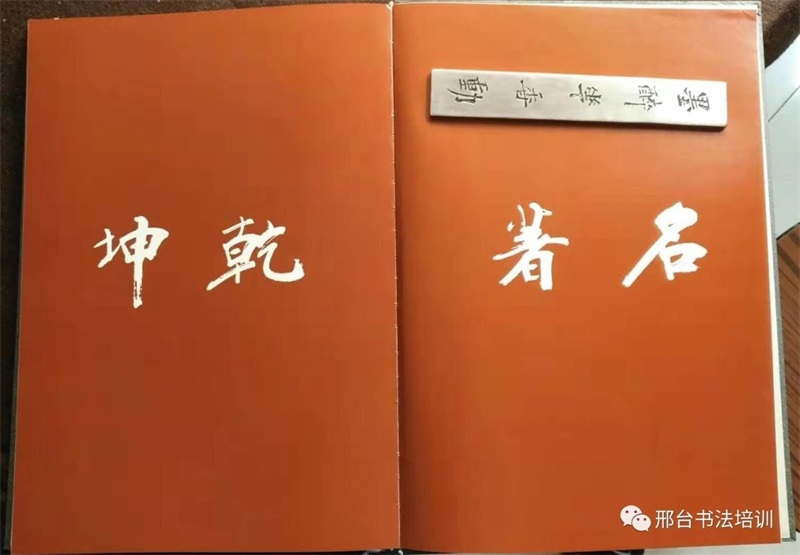 名著乾坤
墨醉香動
邢台书法培训